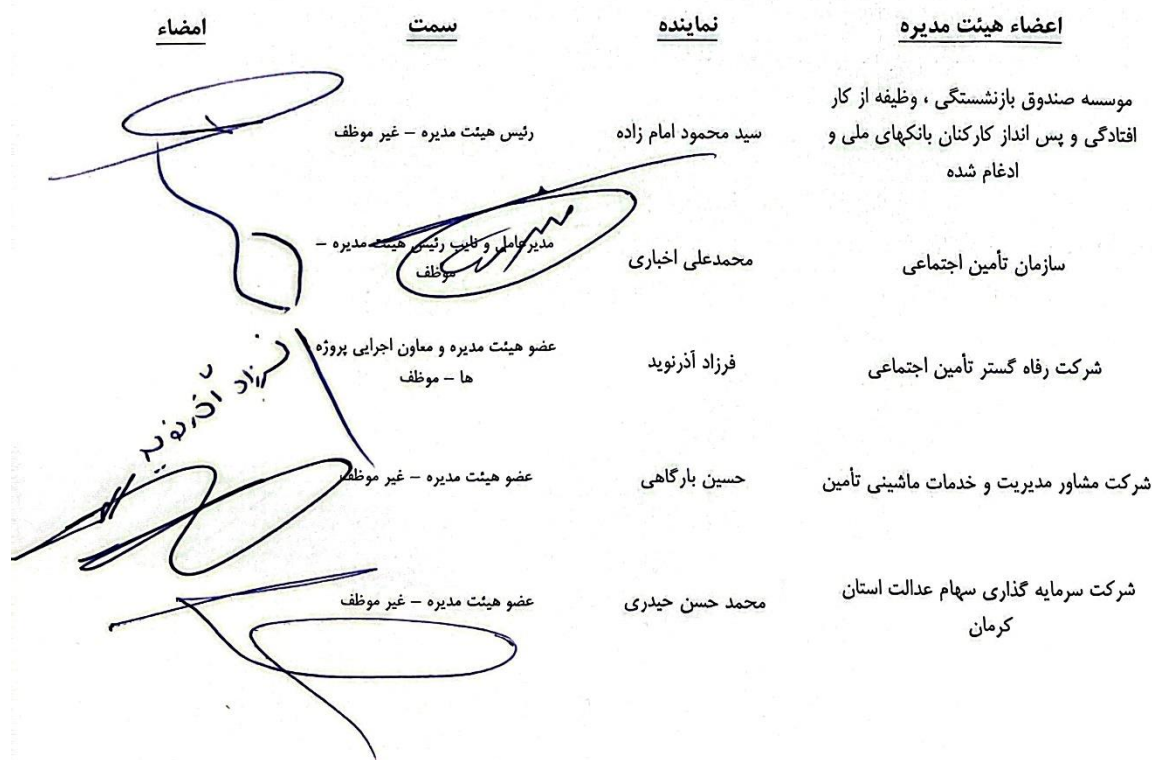 اعضاء هیئت مدیره نماینده سمت امضاء
موسسه صندوق بازنشستگی ، وظیفه از کار
افتادگی و پس انداز کارکنان بانکهای ملی و
ادغام شده
سید محمود امام زاده
رئیس هیئت مدیره – غیر موظف
سازمان تأمین اجتماعی
محمدعلی اخباری
مدیرعامل و نایب رئیس هیئت مدیره –
موظف
شرکت رفاه گستر تأمین اجتماعی
فرزاد آذرنوید
عضو هیئت مدیره و معاون اجرایی پروژه
ها – موظف
فرزاد آذرنوید
شرکت مشاور مدیریت و خدمات ماشینی تأمین
حسین بارگاهی
عضو هیئت مدیره – غیر موظف
شرکت سرمایه گذاری سهام عدالت استان
کرمان
محمد حسن حیدری
عضو هیئت مدیره – غیر موظف